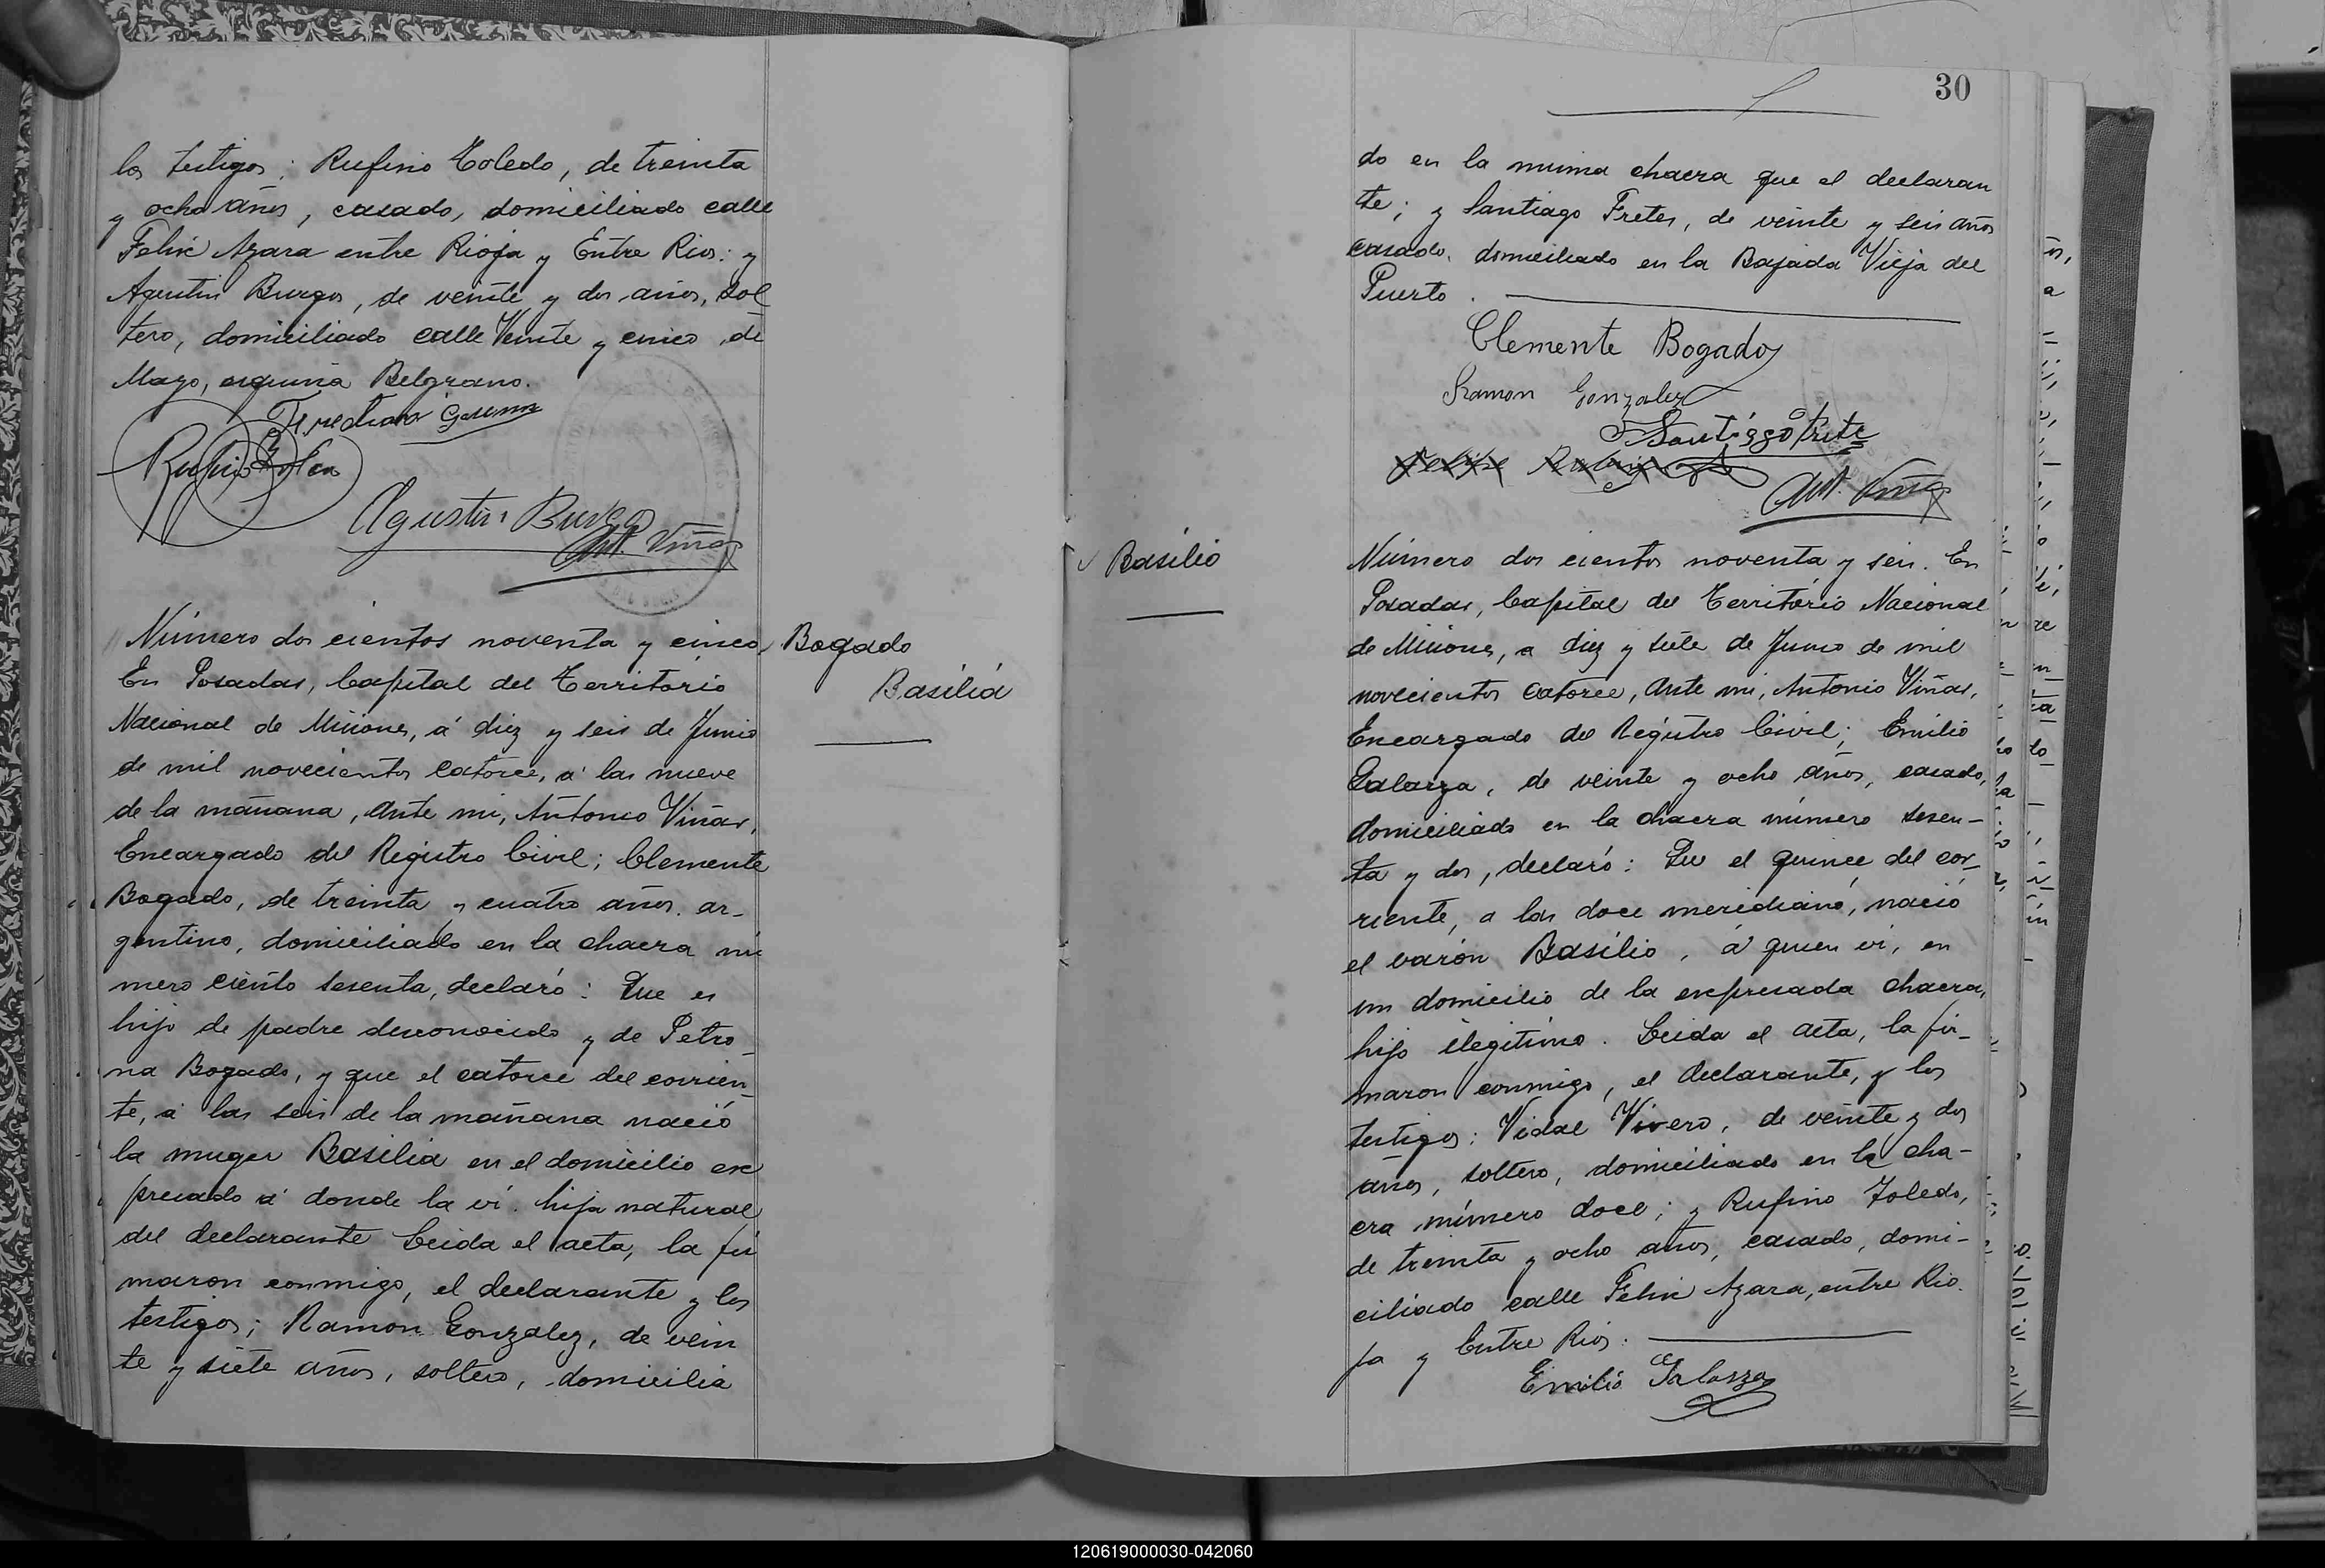 los testigos: Rufino Toledo, de treinta
y ocho años, casado, domiciliado calle
Felix Azara entre Rioja y Entre Rios: y
Agustin Burgos, de veinte y dos años, sol
tero, domiciliado calle Veinte y cinco de
Mayo, esquina Belgrano.
Agustin Burgos
Ant. Viñas
Número dos cientos noventa y cinco,
En Posadas, Capital del Territorio
Nacional de Misiones, á diez y seis de Junio
de mil novecientos catorce, a las nueve
de la mañana, Ante mi, Antonio Viñas,
Encargado del Registro Civil; Clemente
Bogado, de treinta y cuatro años, ar-
gentino, domiciliado en la chacra nú
mero ciento sesenta, declaró: Que es
hijo de padre desconocido y de Petro-
na Bogado, y que el catorce del corrien-
te, a las seis de la mañana nació
la muger Basilia en el domicilio ex
presado á donde la vi. hija natural
del declarante Leida el acta, la fir
maron conmigo, el declarante y los
testigos; Ramon Gonzalez, de vein
te y siete años, soltero, domicilia
Bogado
Basilia
30
do en la misma chacra que el declaran
te; y Santiago Fretes, de veinte y seis años
casado, domiciliado en la Bajada Vieja del
Puerto.
Clemente Bogado
Ramon Gonzalez
Santiago Frete
Ant. Viñas
Basilio
Número dos cientos noventa y seis. En
Posadas, Capital del Territorio Nacional
de Misiones, a diez y siete de Junio de mil
novecientos catorce, Ante mi, Antonio Viñas,
Encargado del Registro Civil; Emilio
Galarza, de veinte y ocho años, casado,
domiciliado en la chacra número sesen-
ta y dos, declaró: Que el quince del cor-
riente, a las doce meridiano, nació
el varón Basilio, á quien vi, en
un domicilio de la expresada chacra,
hijo ilegitimo. Leida el acta, la fir-
maron conmigo, el declarante, y los
testigos: Vidal Vivero, de veinte y dos
años, soltero, domiciliado en la cha-
cra número doce; y Rufino Toledo,
de treinta y ocho años, casado, domi-
ciliado calle Felix Azara, entre Rio-
ja y Entre Rios.
Emilio Galarza
120619000030-042060